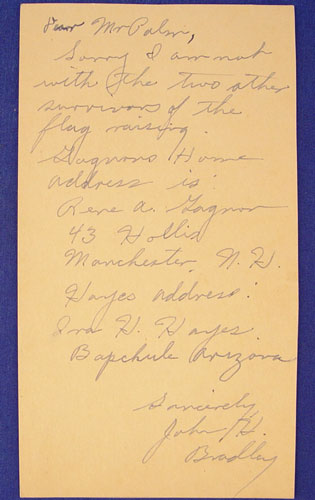 Dear Mr Palm,
Sorry I am not
with the two other
survivors of the
flag raising.
Gagnons Home
address is:
Rene A. Gagnon
43 Hollis
Manchester, N. H.
Hayes address:
Ira H. Hayes.
Bapchule Arizona
Sincerly
John H.
Bradley